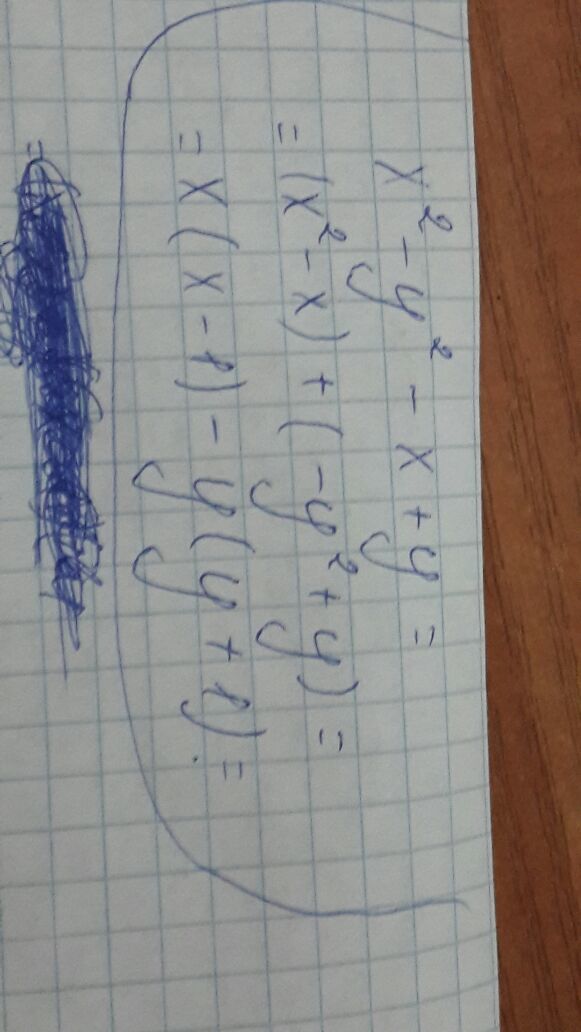 x² - y² - x + y =
= (x² - x) + (-y² + y) =
= x(x - 1) - y(y + 1) =
=